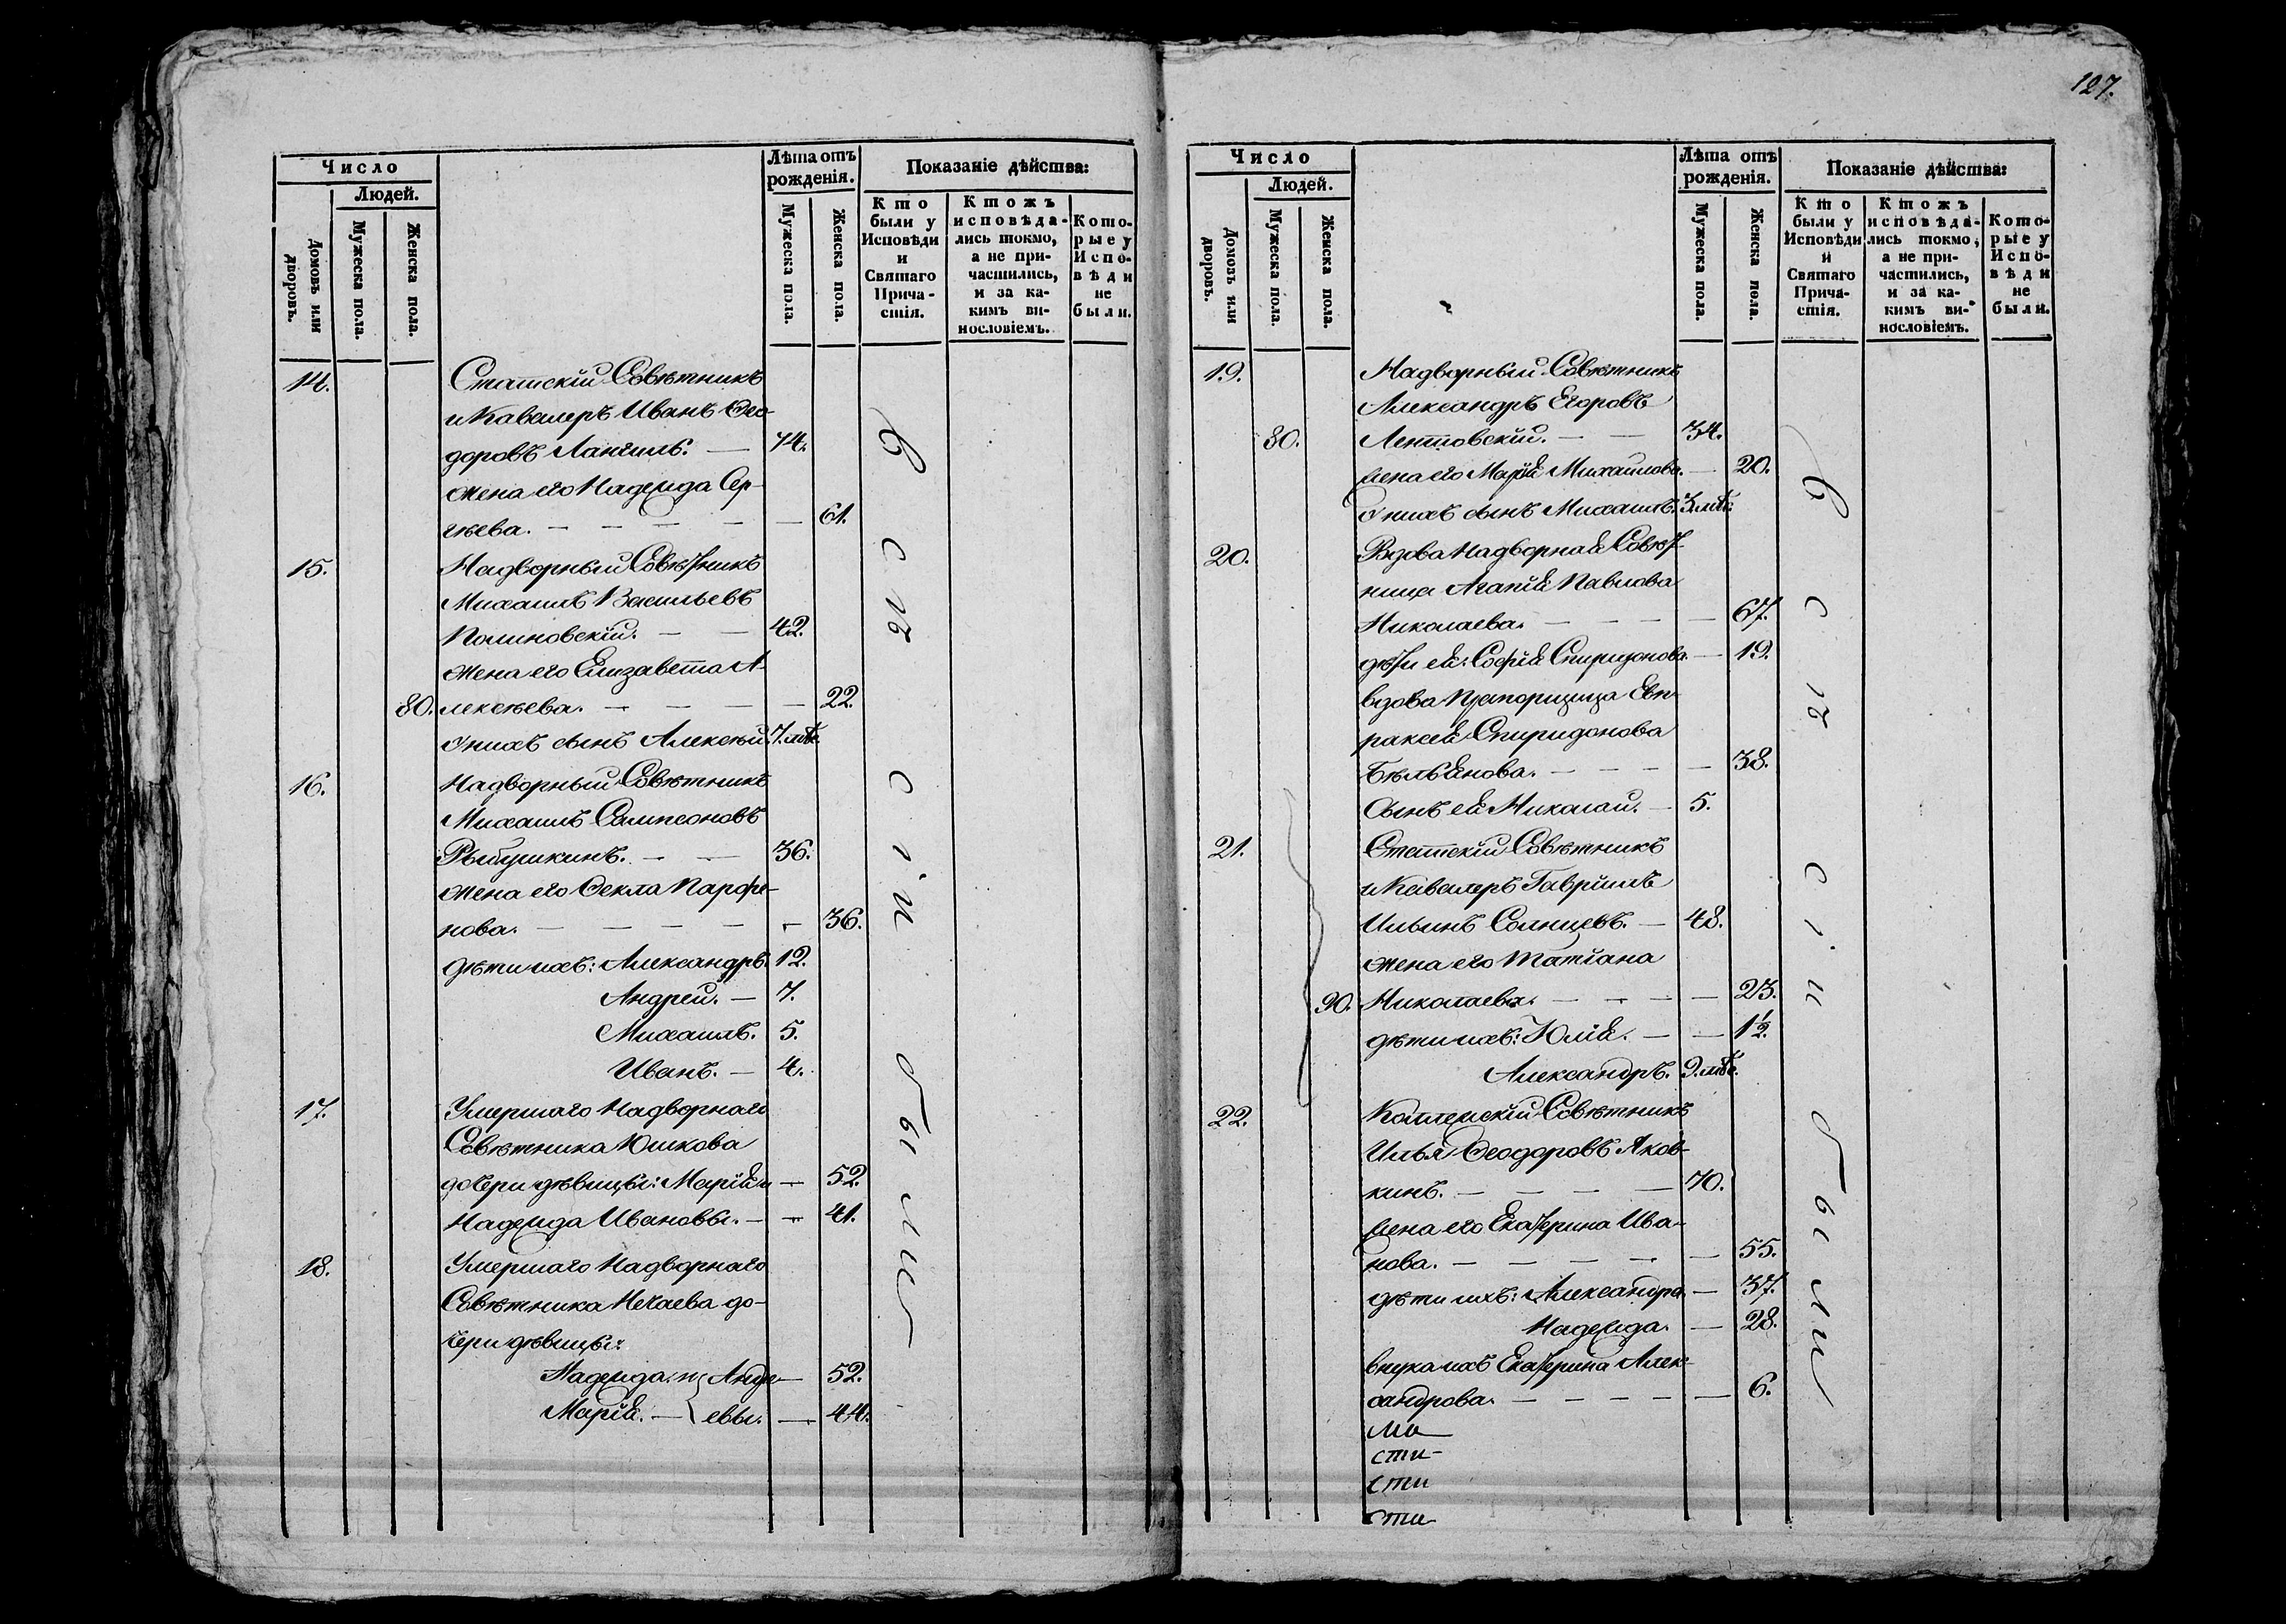 127.
Число
Людей.
Домовъ или дворовъ.
Мужеска пола.
Женска пола.
Лѣта отъ рожденія.
Мужеска пола.
Женска пола.
Показаніе дѣйства:
Кто были у Исповѣди и Святаго Причастія.
Ктожъ исповѣдались токмо, а не причастились, и за какимъ винословіемъ.
Которые у Исповѣди не были.
14. Статскій Совѣтникъ
и Кавалеръ Иванъ Ѳео-
доровъ Лангиль. — 74.
жена его Надежда Сер-
гѣева. — 61.
15. Надворный Совѣтникъ
Михаилъ Васильевъ
Полиновскій. — 42.
жена его Елизавета А-
80. лексѣева. — 22.
У нихъ сынъ Алексѣй. 7. мѣс.
16. Надворный Совѣтникъ
Михаилъ Сампсоновъ
Рыбушкинъ. — 36.
жена его Ѳекла Парфе-
нова. — 36.
Дѣти ихъ: Александръ. 12.
Андрей. — 7.
Михаилъ. 5.
Иванъ. — 4.
17. Умершаго Надворнаго
Совѣтника Юшкова
дочери дѣвицы: Марія и — 52.
Надежда Ивановы. — 41.
18. Умершаго Надворнаго
Совѣтника Нечаева до-
чери дѣвицы:
Надежда и } Андре- — 52.
Марія. — } евы. — 44.
Всѣ сіи были
Число
Людей.
Домовъ или дворовъ.
Мужеска пола.
Женска пола.
Лѣта отъ рожденія.
Мужеска пола.
Женска пола.
Показаніе дѣйства:
Кто были у Исповѣди и Святаго Причастія.
Ктожъ исповѣдались токмо, а не причастились, и за какимъ винословіемъ.
Которые у Исповѣди не были.
19. Надворный Совѣтникъ
Александръ Егоровъ
80. Лентовскій. — 34.
жена его Марія Михаилова. — 20.
У нихъ сынъ Михаилъ. 3. мѣс.
20. Вдова Надворная Совѣт-
ница Агапія Павлова
Николаева. — 67.
дѣти ея: Софія Спиридонова. — 19.
вдова Прапорщица Евп-
раксія Спиридонова
Бѣльянова. — 38.
Сынъ ея Николай. — 5.
21. Статскій Совѣтникъ
и Кавалеръ Гавріилъ
Ильинъ Солнцевъ. — 48.
жена его Татіана
90. Николаева. — 23.
дѣти ихъ: Юлія. — 1½.
Александръ. 9. мѣс.
22. Коллежскій Совѣтникъ
Илья Ѳеодоровъ Яков-
кинъ. — 70.
жена его Екатерина Ива-
нова. — 55.
дѣти ихъ: Александра. — 37.
Надежда. — 28.
внука ихъ Екатерина Алек-
сандрова. — 6.
сти
сти
сти
Всѣ сіи были